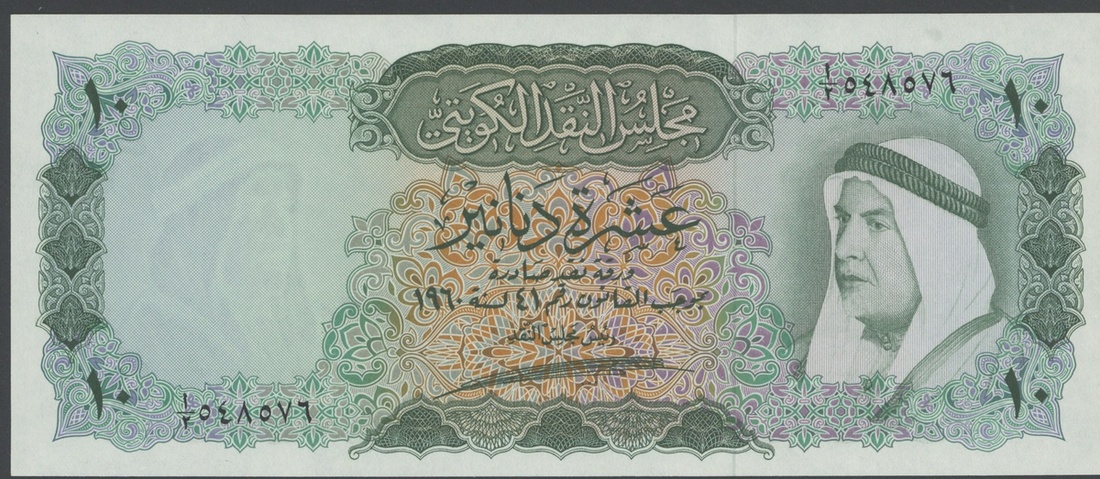 ١٠
١/٢ ٥٤٨٥٧٦
١٠
مجلس النقد الكويتي
عشرة دنانير
ورقة نقد صادرة
بموجب القانون رقم ٤١ لسنة ١٩٦٠
رئيس مجلس النقد
١٠
١/٢ ٥٤٨٥٧٦
١٠